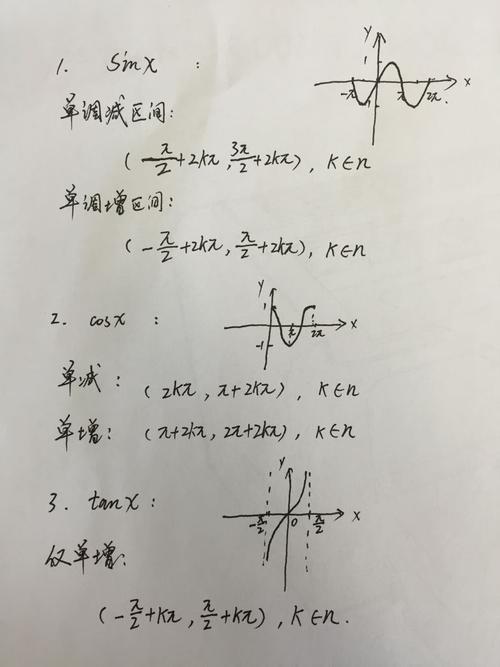 1. sinx :
y
1
-π π 2π x
1
单调减区间:
(-π/2+2kπ, 3π/2+2kπ), k∈n
单调增区间:
(-π/2+2kπ, π/2+2kπ), k∈n
2. cosx :
y
1
π 2π x
-1
单减: (2kπ, π+2kπ), k∈n
单增: (π+2kπ, 2π+2kπ), k∈n
3. tanx:
y
-π/2 0 π/2 x
仅单增:
(-π/2+kπ, π/2+kπ), k∈n.